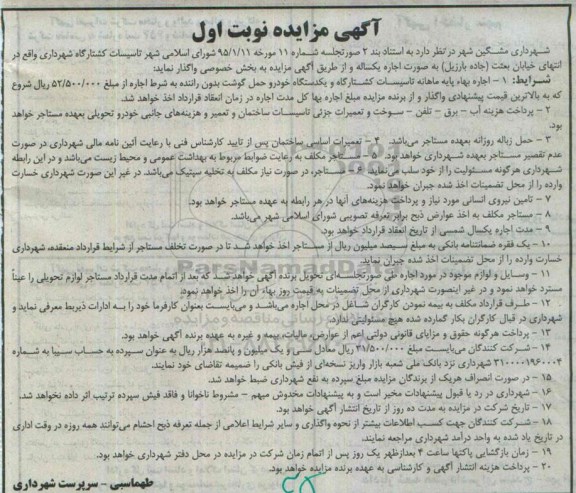 آگهی مزایده نوبت اول
شهرداری مشگین شهر در نظر دارد به استناد بند ۲ صورتجلسه شماره ۱۱ مورخه ۹۵/۱/۱۱ شورای اسلامی شهر تاسیسات کشتارگاه شهرداری واقع در
انتهای خیابان بعثت (جاده بارزیل) به صورت اجاره یکساله و از طریق آگهی مزایده به بخش خصوصی واگذار نماید:
شرایط: ۱ – اجاره بهاء پایه ماهانه تاسیسات کشتارگاه و یکدستگاه خودرو حمل گوشت بدون راننده به شرط اجاره از مبلغ ۵۲/۵۰۰/۰۰۰ ریال شروع
که به بالاترین قیمت پیشنهادی واگذار و از برنده مزایده مبلغ اجاره بها کل مدت اجاره در زمان انعقاد قرارداد اخذ خواهد شد.
۲ – پرداخت هزینه آب – برق – تلفن – سوخت و تعمیرات جزئی تاسیسات ساختمان و تعمیر و هزینه‌های جانبی خودرو تحویلی بعهده مستاجر خواهد
بود.
۳ – حمل زباله روزانه بعهده مستاجر می‌باشد. ۴ – تعمیرات اساسی ساختمان پس از تایید کارشناس فنی با رعایت آئین نامه مالی شهرداری در صورت
عدم تقصیر مستاجر بعهده شهرداری خواهد بود. ۵ – مستاجر مکلف به رعایت ضوابط مربوط به بهداشت عمومی و محیط زیست می‌باشد و در این رابطه
شهرداری هرگونه مسئولیت را از خود سلب می‌نماید. ۶ – مستاجر، در صورت نیاز مکلف به تخلیه سپتیک می‌باشد. در غیر این صورت شهرداری خسارت
وارده را از محل تضمینات اخذ شده جبران خواهد نمود.
۷ – تامین نیروی انسانی مورد نیاز و پرداخت هزینه‌های آنها در هر رابطه به عهده مستاجر خواهد بود.
۸ – مستاجر مکلف به اخذ عوارض ذبح برابر تعرفه تصویبی شورای اسلامی شهر می‌باشد.
۹ – مدت اجاره یکسال شمسی از تاریخ انعقاد قرارداد خواهد بود.
۱۰ – یک فقره ضمانتنامه بانکی به مبلغ سیصد میلیون ریال از مستاجر اخذ خواهد شد تا در صورت تخلف مستاجر از شرایط قرارداد منعقده، شهرداری
خسارت وارده را از محل تضمینات اخذ شده جبران نماید.
۱۱ – وسایل و لوازم موجود در مورد اجاره طی صورتجلسه‌ای تحویل برنده آگهی خواهد شد که بعد از اتمام مدت قرارداد مستاجر لوازم تحویلی را عیناً
مسترد خواهد نمود و در غیر اینصورت شهرداری از محل تضمینات به قیمت روز بهاء آن را اخذ خواهد نمود.
۱۲ – طرف قرارداد مکلف به بیمه نمودن کارگران شاغل در محل اجاره می‌باشد و می‌بایست بعنوان کارفرما خود را به ادارات ذیربط معرفی نماید و
شهرداری در قبال کارگران بکار گمارده شده هیچ مسئولیتی ندارد.
۱۳ – پرداخت هرگونه حقوق و مزایای قانونی دولتی اعم از عوارض، مالیات، بیمه و غیره به عهده برنده آگهی خواهد بود.
۱۴ – شرکت کنندگان می‌بایست مبلغ ۳۱/۵۰۰/۰۰۰ ریال معادل سی و یک میلیون و پانصد هزار ریال به عنوان سپرده به حساب سیبا به شماره
۳۱۰۰۰۰۱۹۶۰۰۴ شهرداری نزد بانک ملی شعبه بازار واریز نسخه‌ای از فیش بانکی را ضمیمه تقاضای خود نمایند.
۱۵ – در صورت انصراف هریک از برندگان مزایده مبلغ سپرده به نفع شهرداری ضبط خواهد شد.
۱۶ – شهرداری در رد یا قبول پیشنهادات مخیر است و به پیشنهادات مخدوش مبهم – مشروط ناخوانا و فاقد فیش سپرده ترتیب اثر داده نخواهد شد.
۱۷ – تاریخ شرکت در مزایده به مدت ده روز از تاریخ انتشار آگهی خواهد بود.
۱۸ – شرکت کنندگان جهت کسب اطلاعات بیشتر از نحوه واگذاری و سایر شرایط اعلامی از جمله تعرفه ذبح احشام می‌توانند همه روزه در وقت اداری
در تاریخ یاد شده به واحد درآمد شهرداری مراجعه نمایند.
۱۹ – زمان بازگشایی پاکتها ساعت ۴ بعدازظهر یک روز پس از اتمام زمان شرکت در مزایده در محل دفتر شهرداری خواهد بود.
۲۰ – پرداخت هزینه انتشار آگهی و کارشناسی به عهده برنده مزایده خواهد بود.
طهماسبی – سرپرست شهرداری